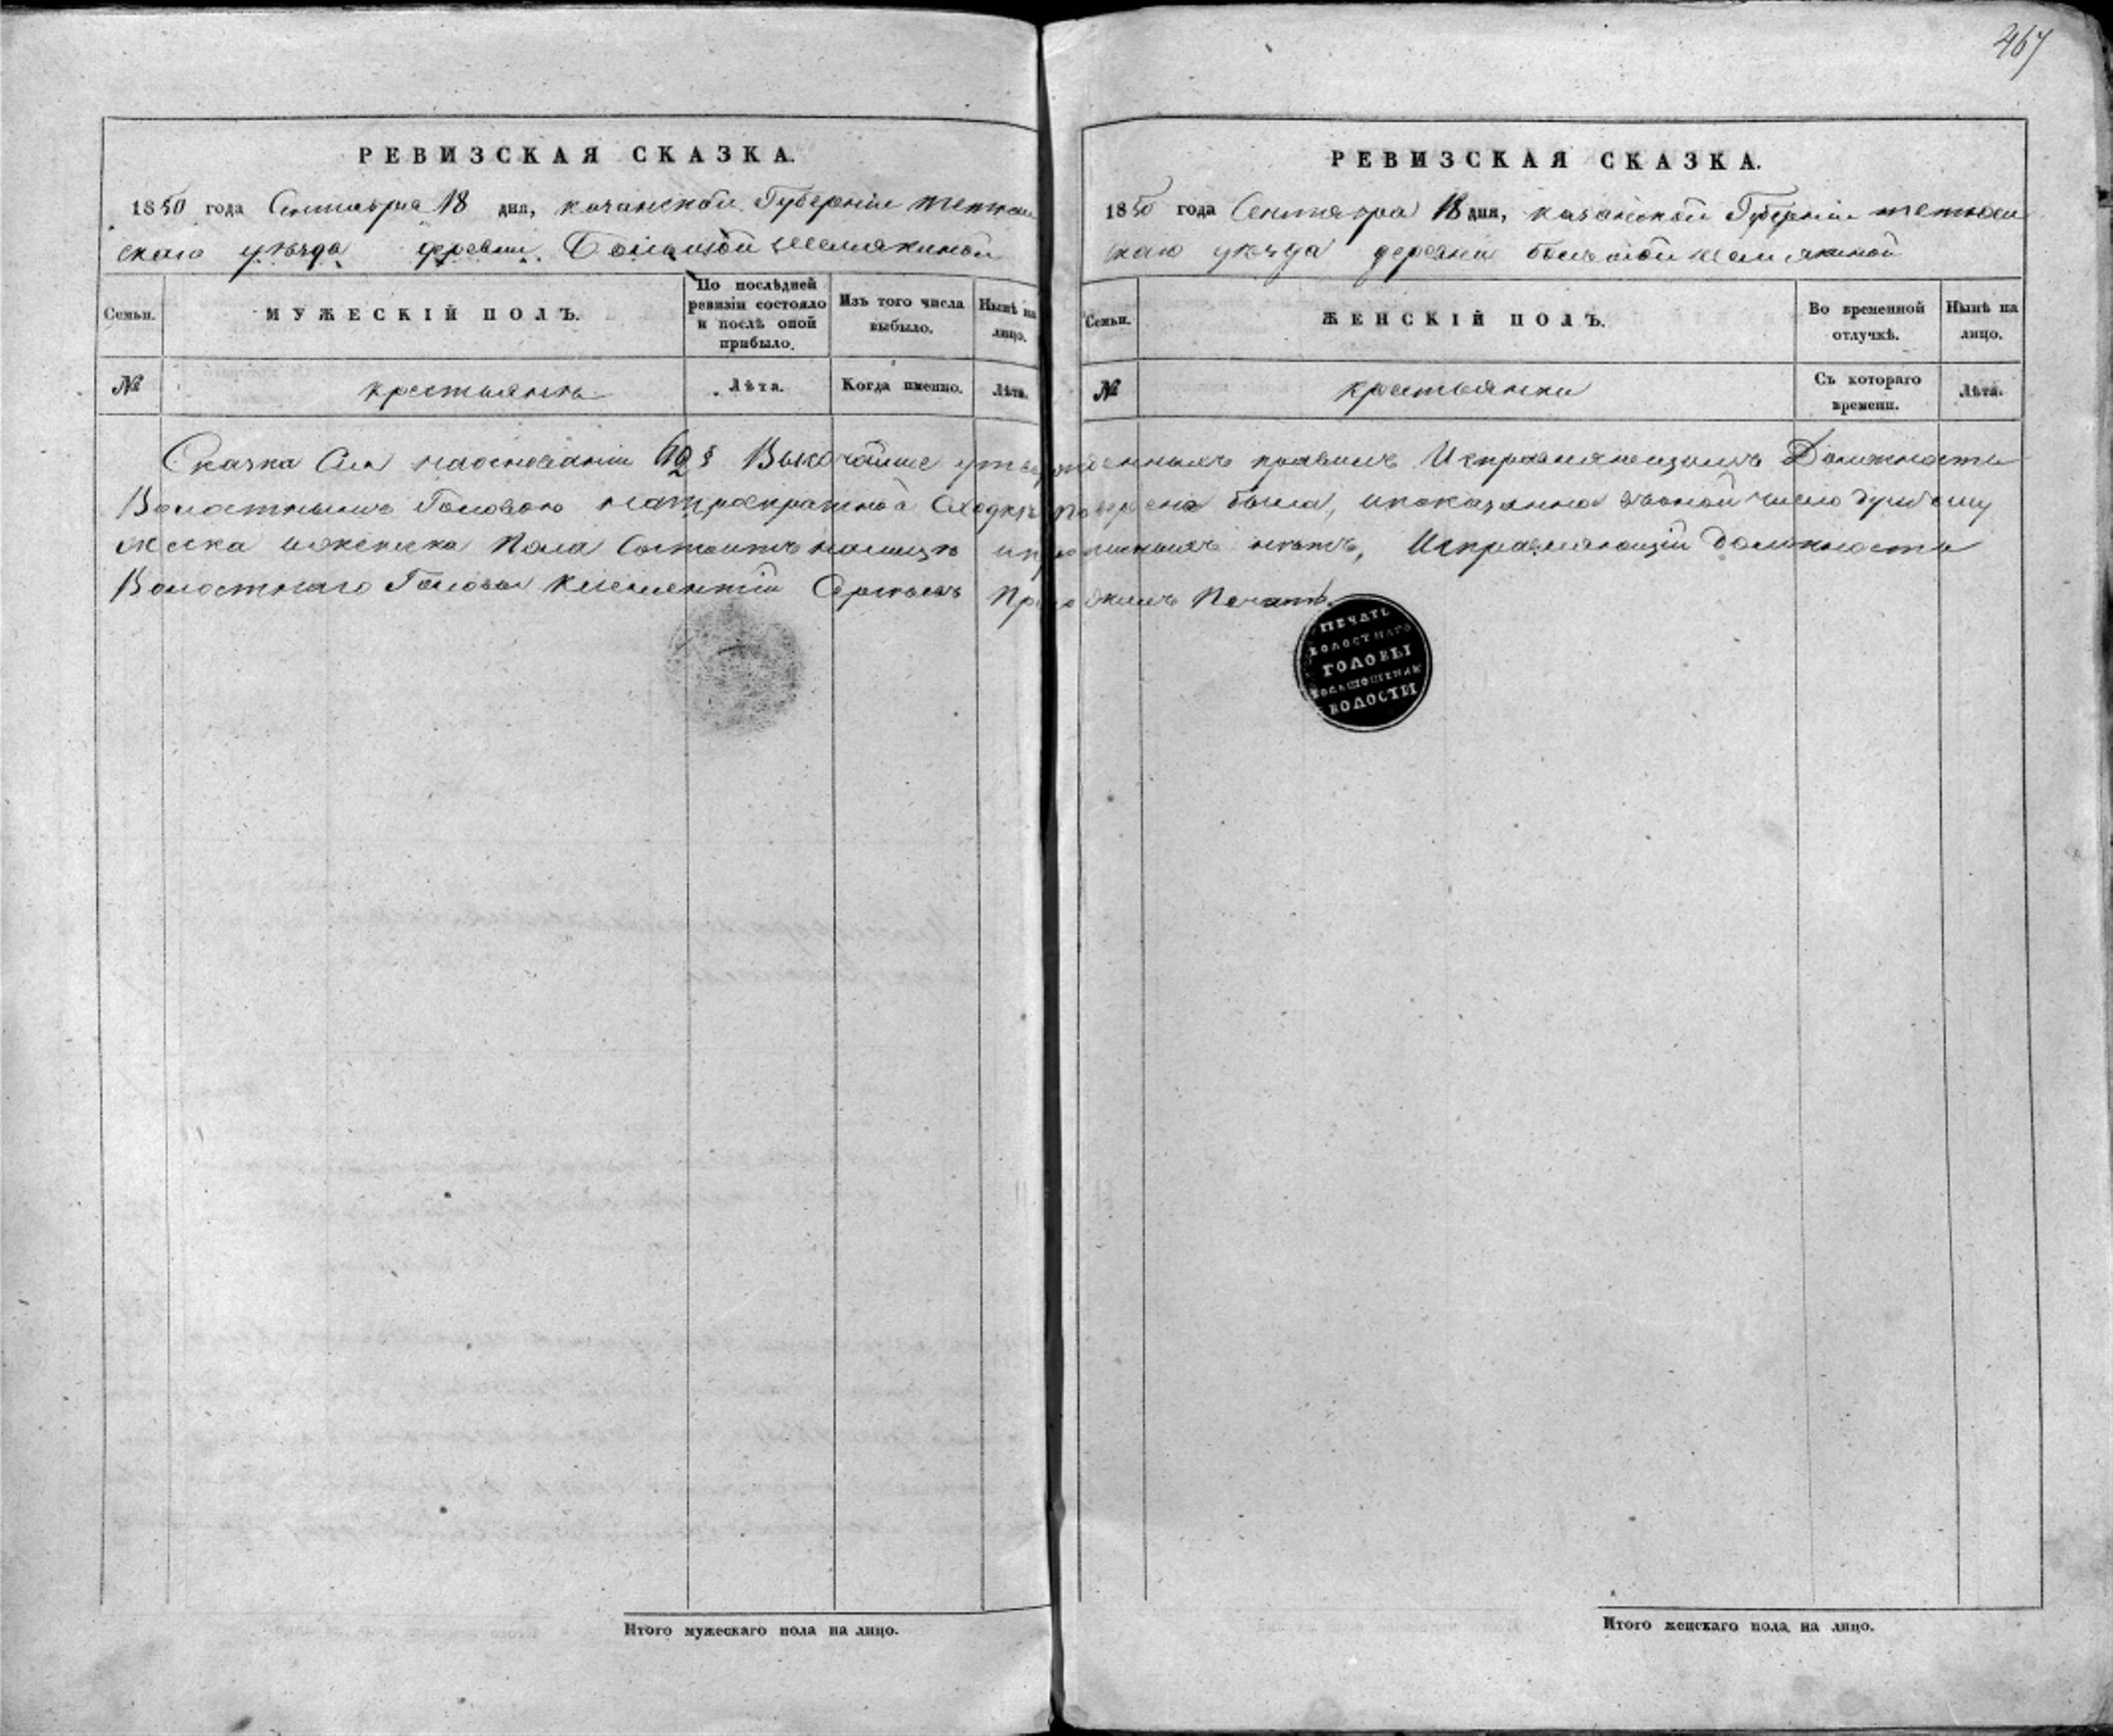 467
РЕВИЗСКАЯ СКАЗКА.
1850 года Сентября 18 дня, казанской Губернии тетюш
скаго уѣзда деревни Большой Шемякиной
Семьи.
МУЖЕСКІЙ ПОЛЪ.
По послѣдней ревизіи состояло и послѣ оной прибыло.
Изъ того числа выбыло.
Нынѣ на лицо.
№
крестьянъ
Лѣта.
Когда именно.
Лѣта.
РЕВИЗСКАЯ СКАЗКА.
1850 года Сентября 18 дня, казанской Губерніи тетюш
скаго уѣзда деревни большой шемякиной
Семьи.
ЖЕНСКІЙ ПОЛЪ.
Во временной отлучкѣ.
Нынѣ на лицо.
№
крестьянки
Съ котораго времени.
Лѣта.
Сказка Сія наосновании § Высочайше утвержденныхъ правилъ Исправляющимъ Должность
Волостнымъ Головою сходкѣ повѣрена была, ипоказанное воной число душъ му
жеска иженска Пола Состоитъ налицо ипрописныхъ нетъ, Исправляющій должность
Волостнаго Головы Клементій Сергѣевъ Приложилъ Печать.
ПЕЧАТЬ
ВОЛОСТНАГО
ГОЛОВЫ
ВОЛОСТИ
Итого мужескаго пола на лицо.
Итого женскаго пола на лицо.